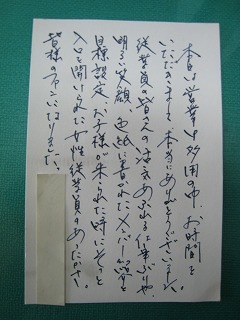 本日は営業中多用の中、お時間を
いただきまして本当にありがとうございました。
従業員の皆さんの活気あふれる仕事ぶりや
明るい笑顔、色紙に書かれたメンバー紹介と
目標設定、お子様が来られた時にそっと
入口を開けられた女性従業員のあたたかさ。
皆様のファンになりました。